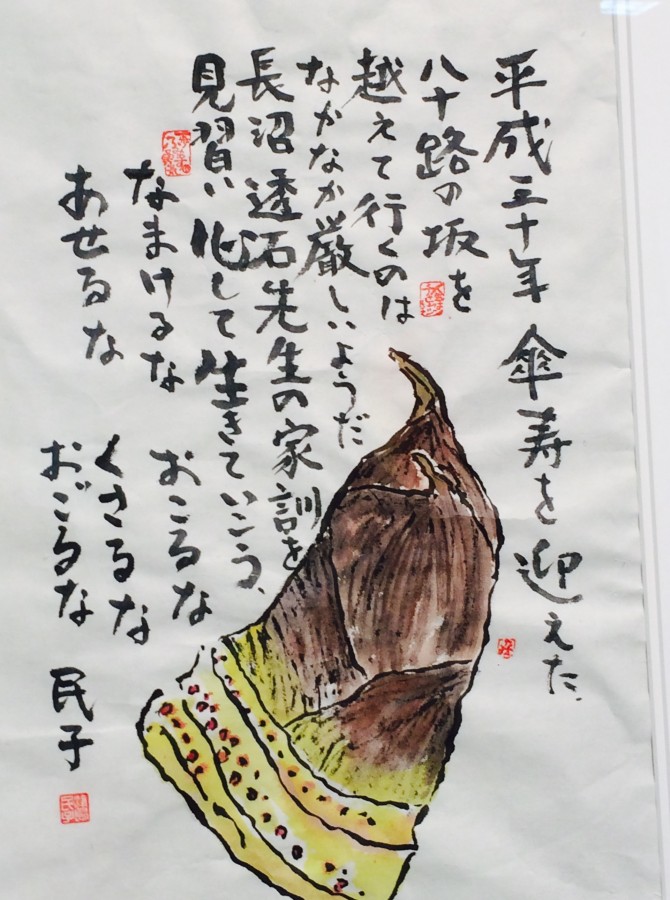 平成三十年 傘寿を迎えた、
八十路の坂を
越えて行くのは
なかなか厳しいようだ
長沼透石先生の家訓を
見習い心して生きていこう、
なまけるな おこるな
あせるな くさるな
おごるな
民子